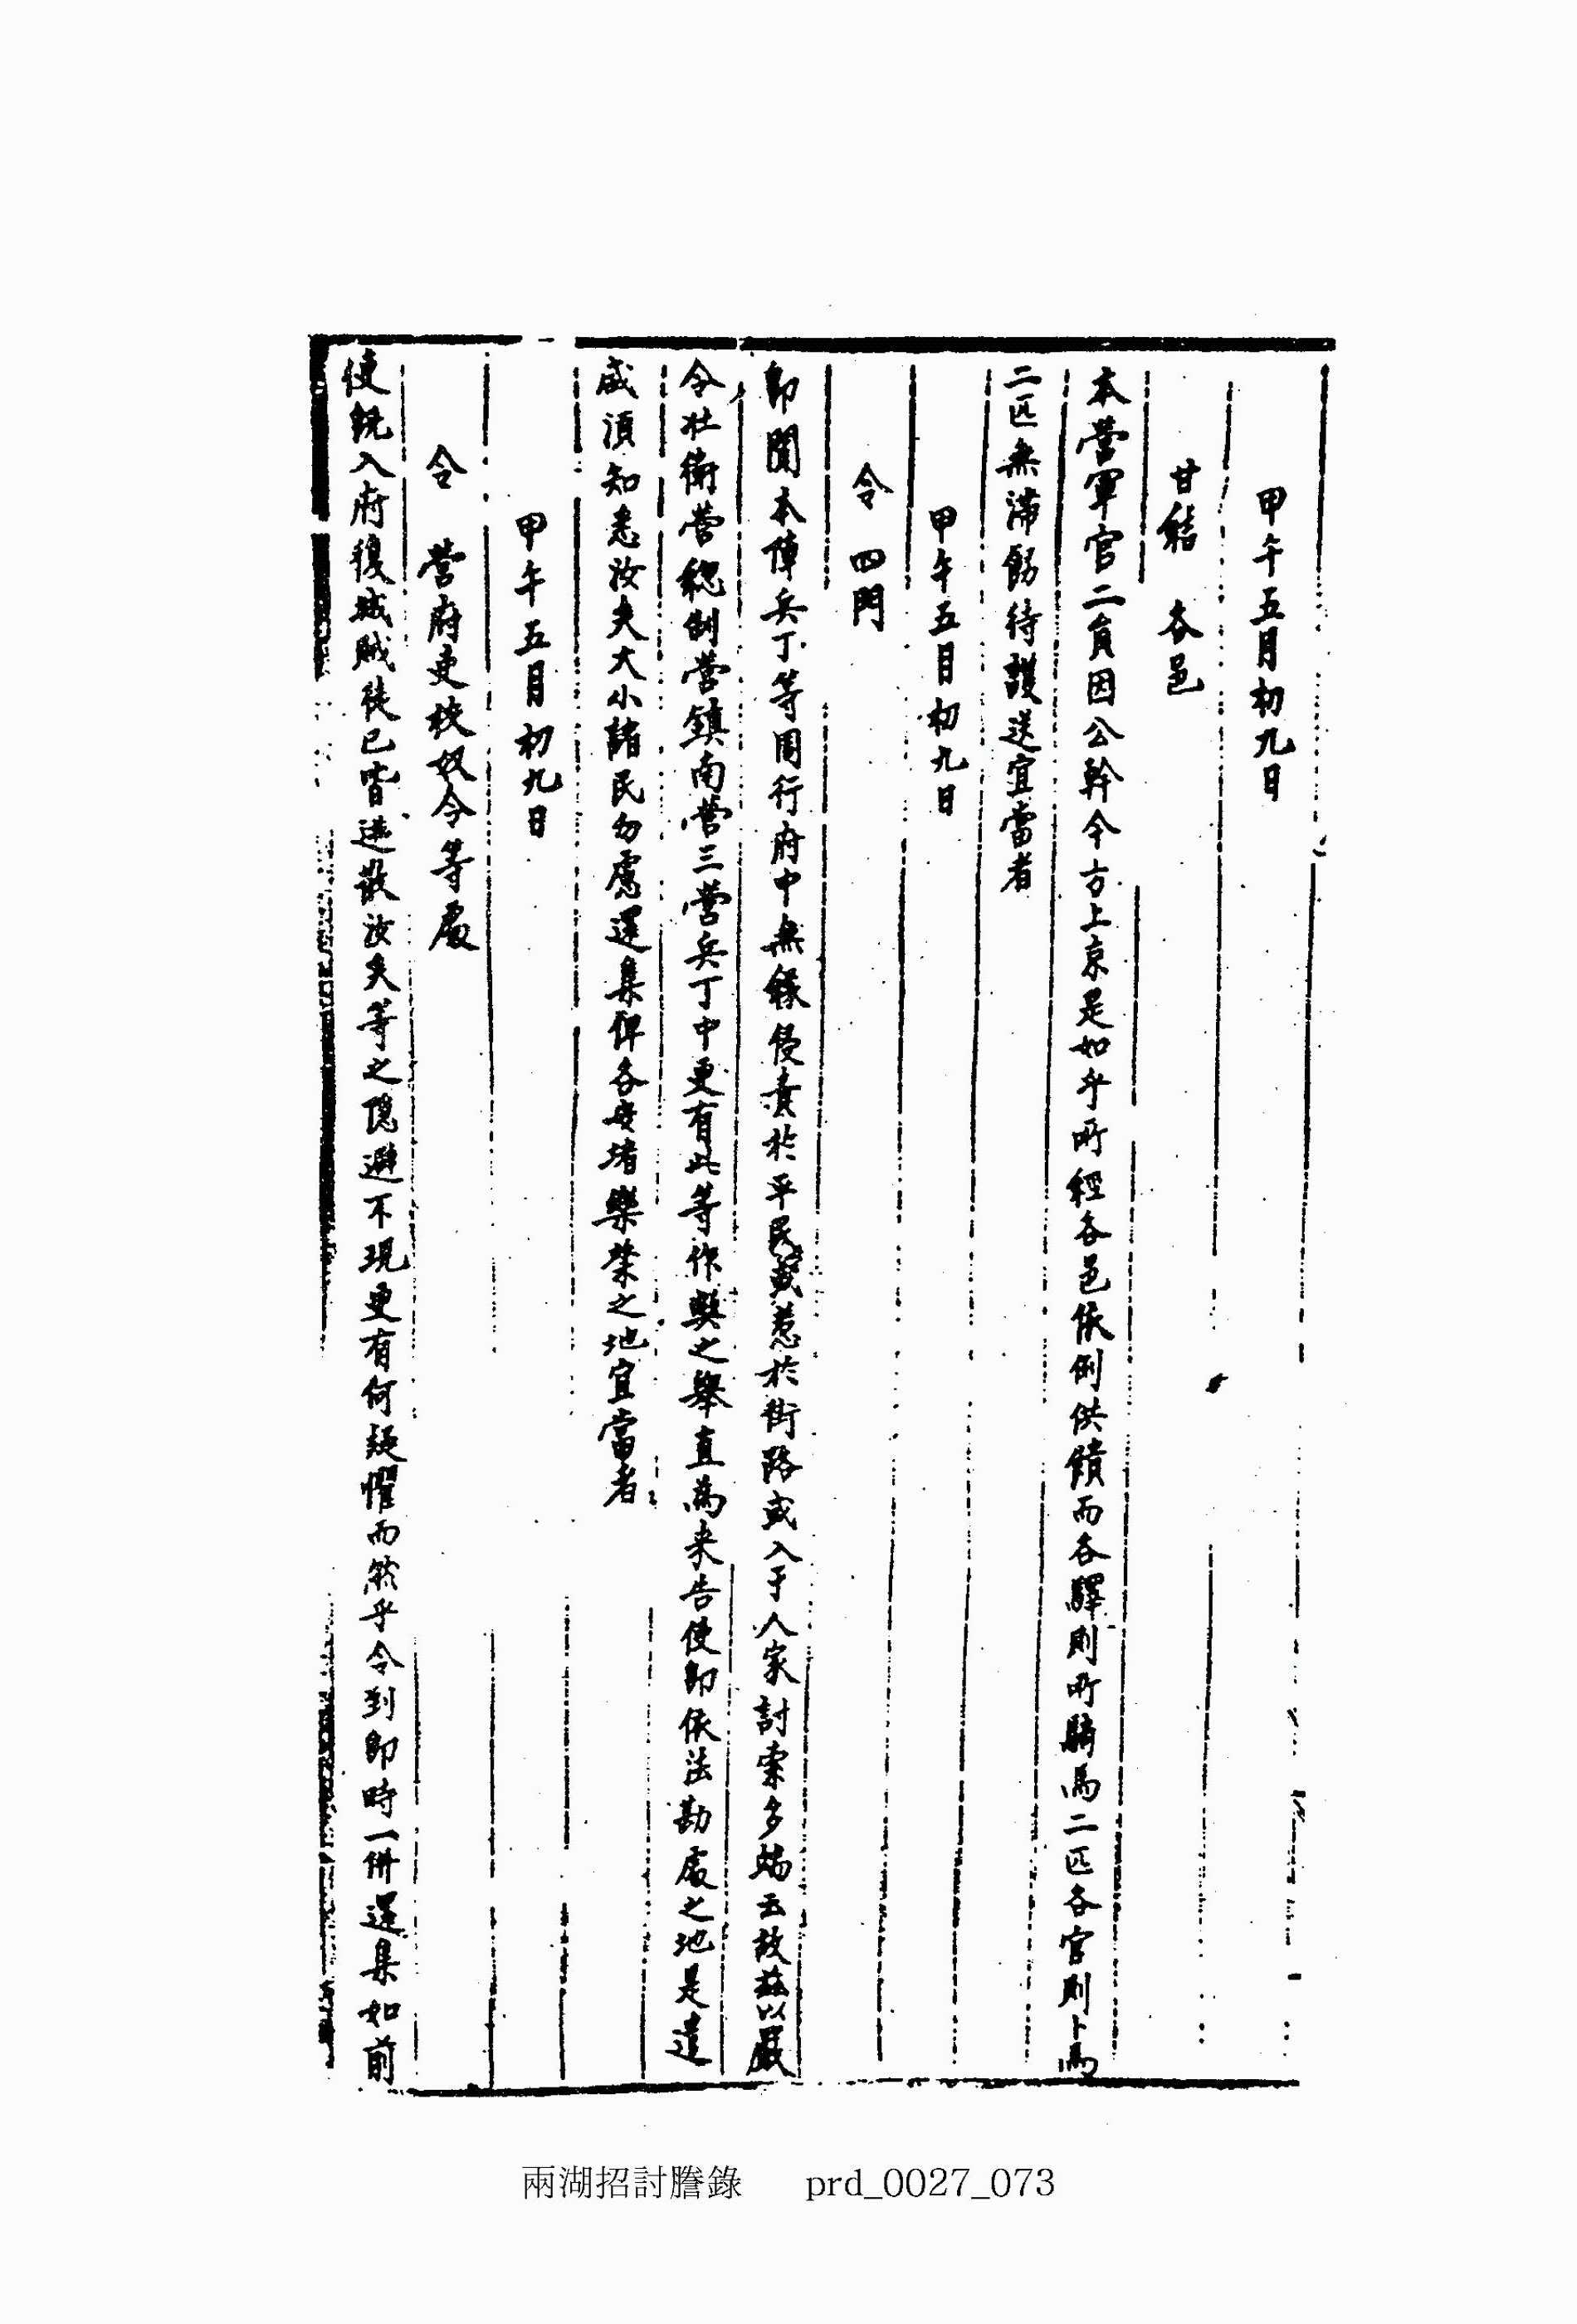 甲午五月初九日
甘結 各邑
本營軍官二員因公幹今方上京是如乎所經各邑依例供饋而各驛則所騎馬二匹各官則卜馬
二匹無滯餙待護送宜當者
甲午五月初九日
令 四門
卽聞本陣兵丁等周行府中無緣侵責於平民或惹於街路或入于人家討索多端云故玆以嚴
令壯衛營總制營鎭南營三營兵丁中更有此等作弊之擧直爲來告使卽依法勘處之地是遣
咸須知悉汝矣大小諸民勿慮還集俾各安堵樂業之地宜當者
甲午五月初九日
令 營府吏校奴令等處
使旣入府復城賊徒已皆逃散汝矣等之隱避不現更有何疑懼而然乎令到卽時一倂還集如前
兩湖招討謄錄 prd_0027_073